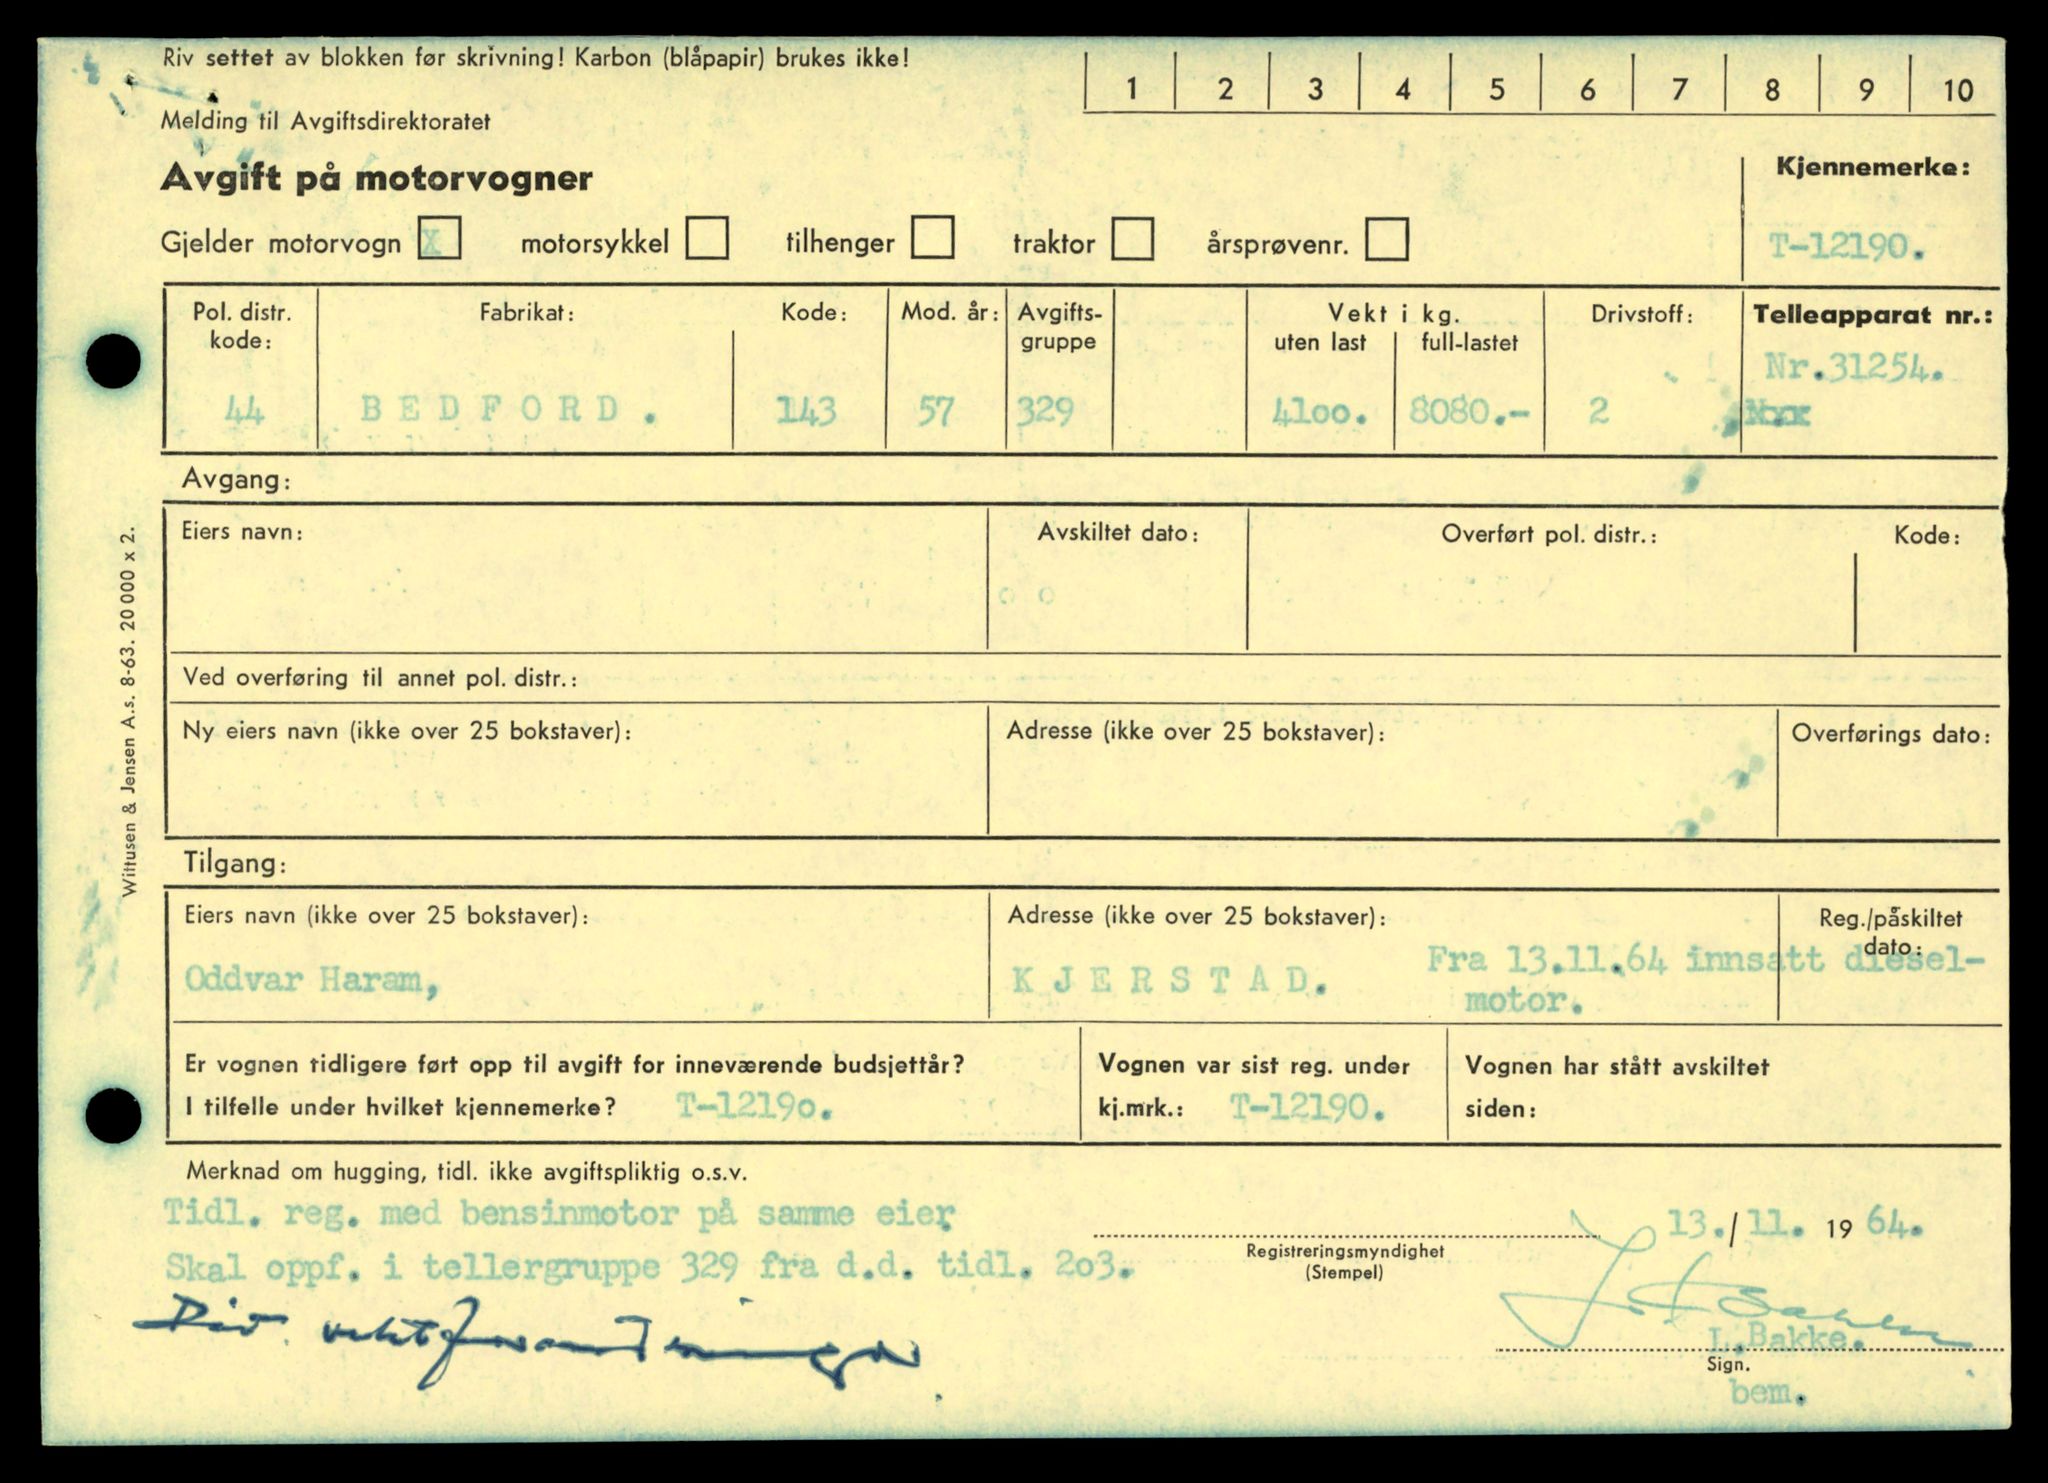 Riv settet av blokken før skrivning! Karbon (blåpapir) brukes ikke!
1 2 3 4 5 6 7 8 9 10
Melding til Avgiftsdirektoratet
Avgift på motorvogner
Kjennemerke:
Gjelder motorvogn X motorsykkel tilhenger traktor årsprøvenr.
T-12190.
Pol. distr. kode:
Fabrikat:
Kode:
Mod. år:
Avgifts-
gruppe
Vekt i kg.
uten last
full-lastet
Drivstoff:
Telleapparat nr.:
Nr.31254.
44 BEDFORD. 143 57 329 4100. 8080.- 2
Avgang:
Eiers navn:
Avskiltet dato:
Overført pol. distr.:
Kode:
Ved overføring til annet pol. distr.:
Ny eiers navn (ikke over 25 bokstaver):
Adresse (ikke over 25 bokstaver):
Overførings dato:
Tilgang:
Eiers navn (ikke over 25 bokstaver):
Adresse (ikke over 25 bokstaver):
Reg./påskiltet
dato:
Oddvar Haram,
KJERSTAD.
Fra 13.11.64 innsatt diesel-
motor.
Er vognen tidligere ført opp til avgift for inneværende budsjettår?
I tilfelle under hvilket kjennemerke? T-1219o.
Vognen var sist reg. under
kj.mrk.: T-12190.
Vognen har stått avskiltet
siden:
Merknad om hugging, tidl. ikke avgiftspliktig o.s.v.
Tidl. reg. med bensinmotor på samme eier
Skal oppf. i tellergruppe 329 fra d.d. tidl. 2o3.
vektforandringer
Registreringsmyndighet
(Stempel)
13./11. 1964.
L.Bakke.
Sign.
bem.
Wittusen & Jensen A.s. 8-63. 20 000 x 2.